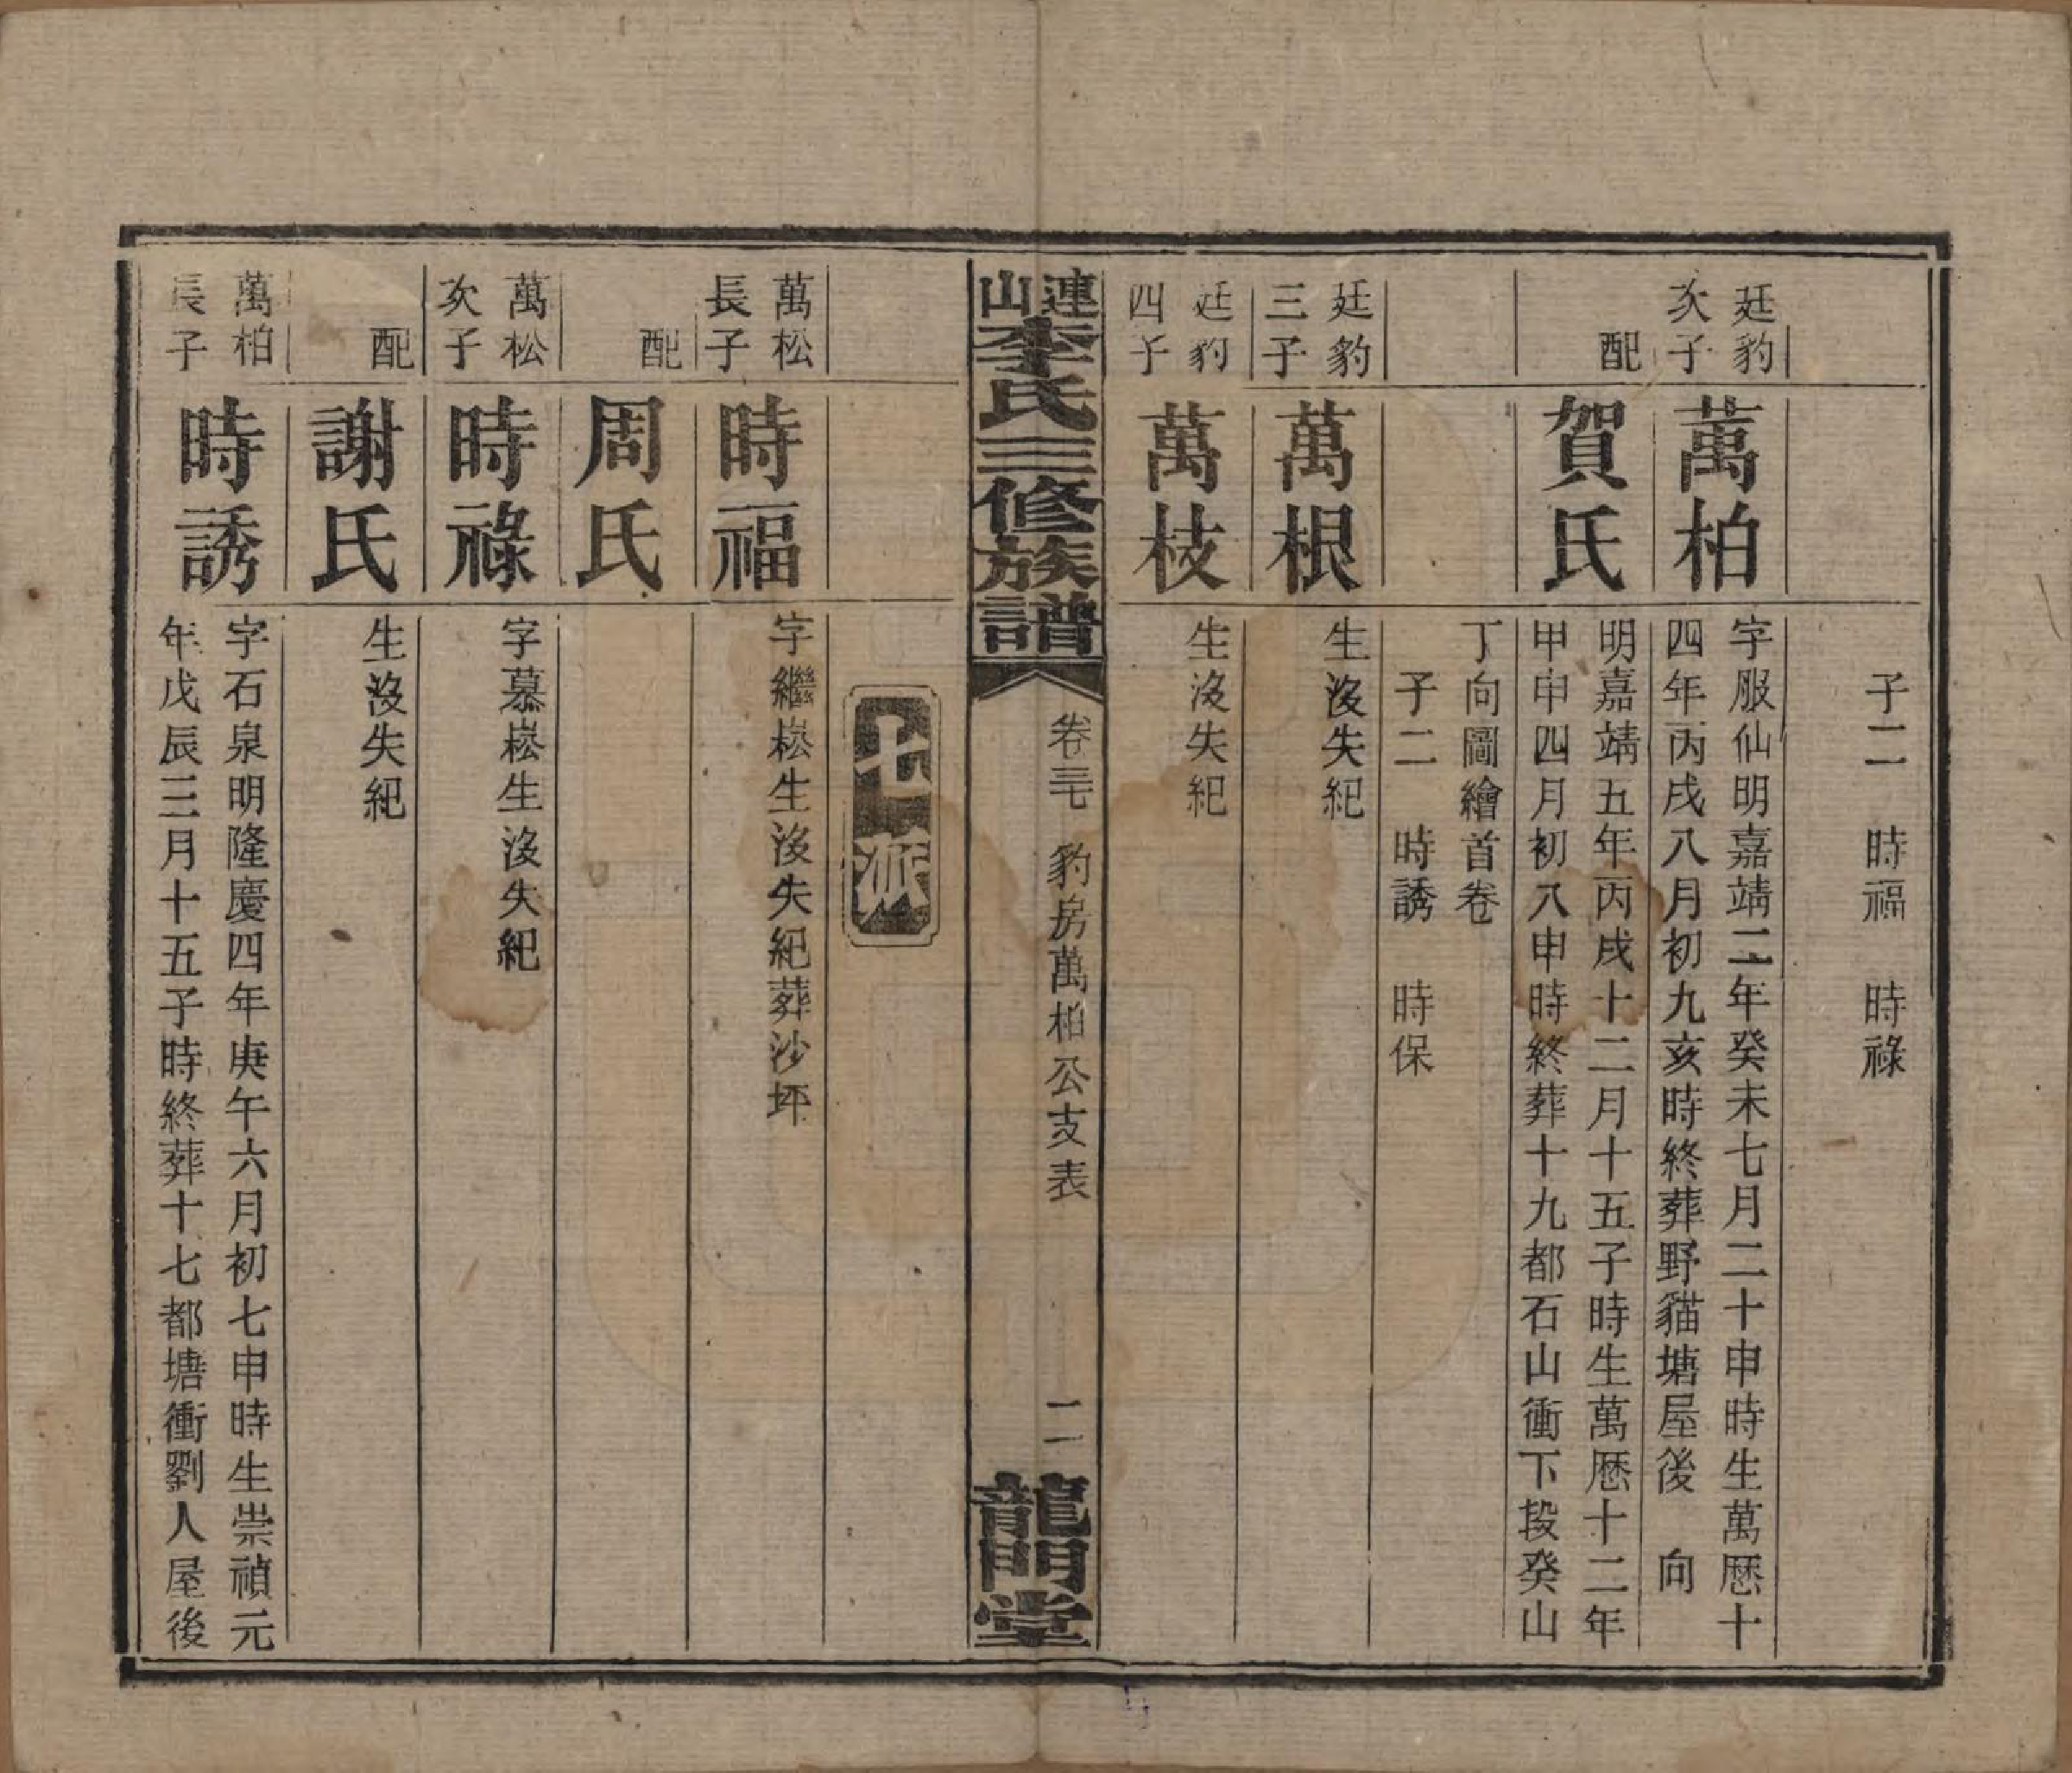 子二　時福　時祿
廷豹次子
萬柏
字服仙明嘉靖二年癸未七月二十申時生萬歷十
四年丙戌八月初九亥時終葬野貓塘屋後　向
配
賀氏
明嘉靖五年丙戌十二月十五子時生萬歷十二年
甲申四月初八申時終葬十九都石山衝下段癸山
丁向圖繪首卷
子二　時誘　時保
廷豹三子
萬根
生沒失紀
廷豹四子
萬枝
生沒失紀
連山李氏三修族譜
卷三七　豹房萬柏公支表
二
龍門堂
七派
萬松長子
時福
字繼崧生沒失紀葬沙坪
配
周氏
萬松次子
時祿
字慕崧生沒失紀
配
謝氏
生沒失紀
萬柏長子
時誘
字石泉明隆慶四年庚午六月初七申時生崇禎元
年戊辰三月十五子時終葬十七都塘衝劉人屋後